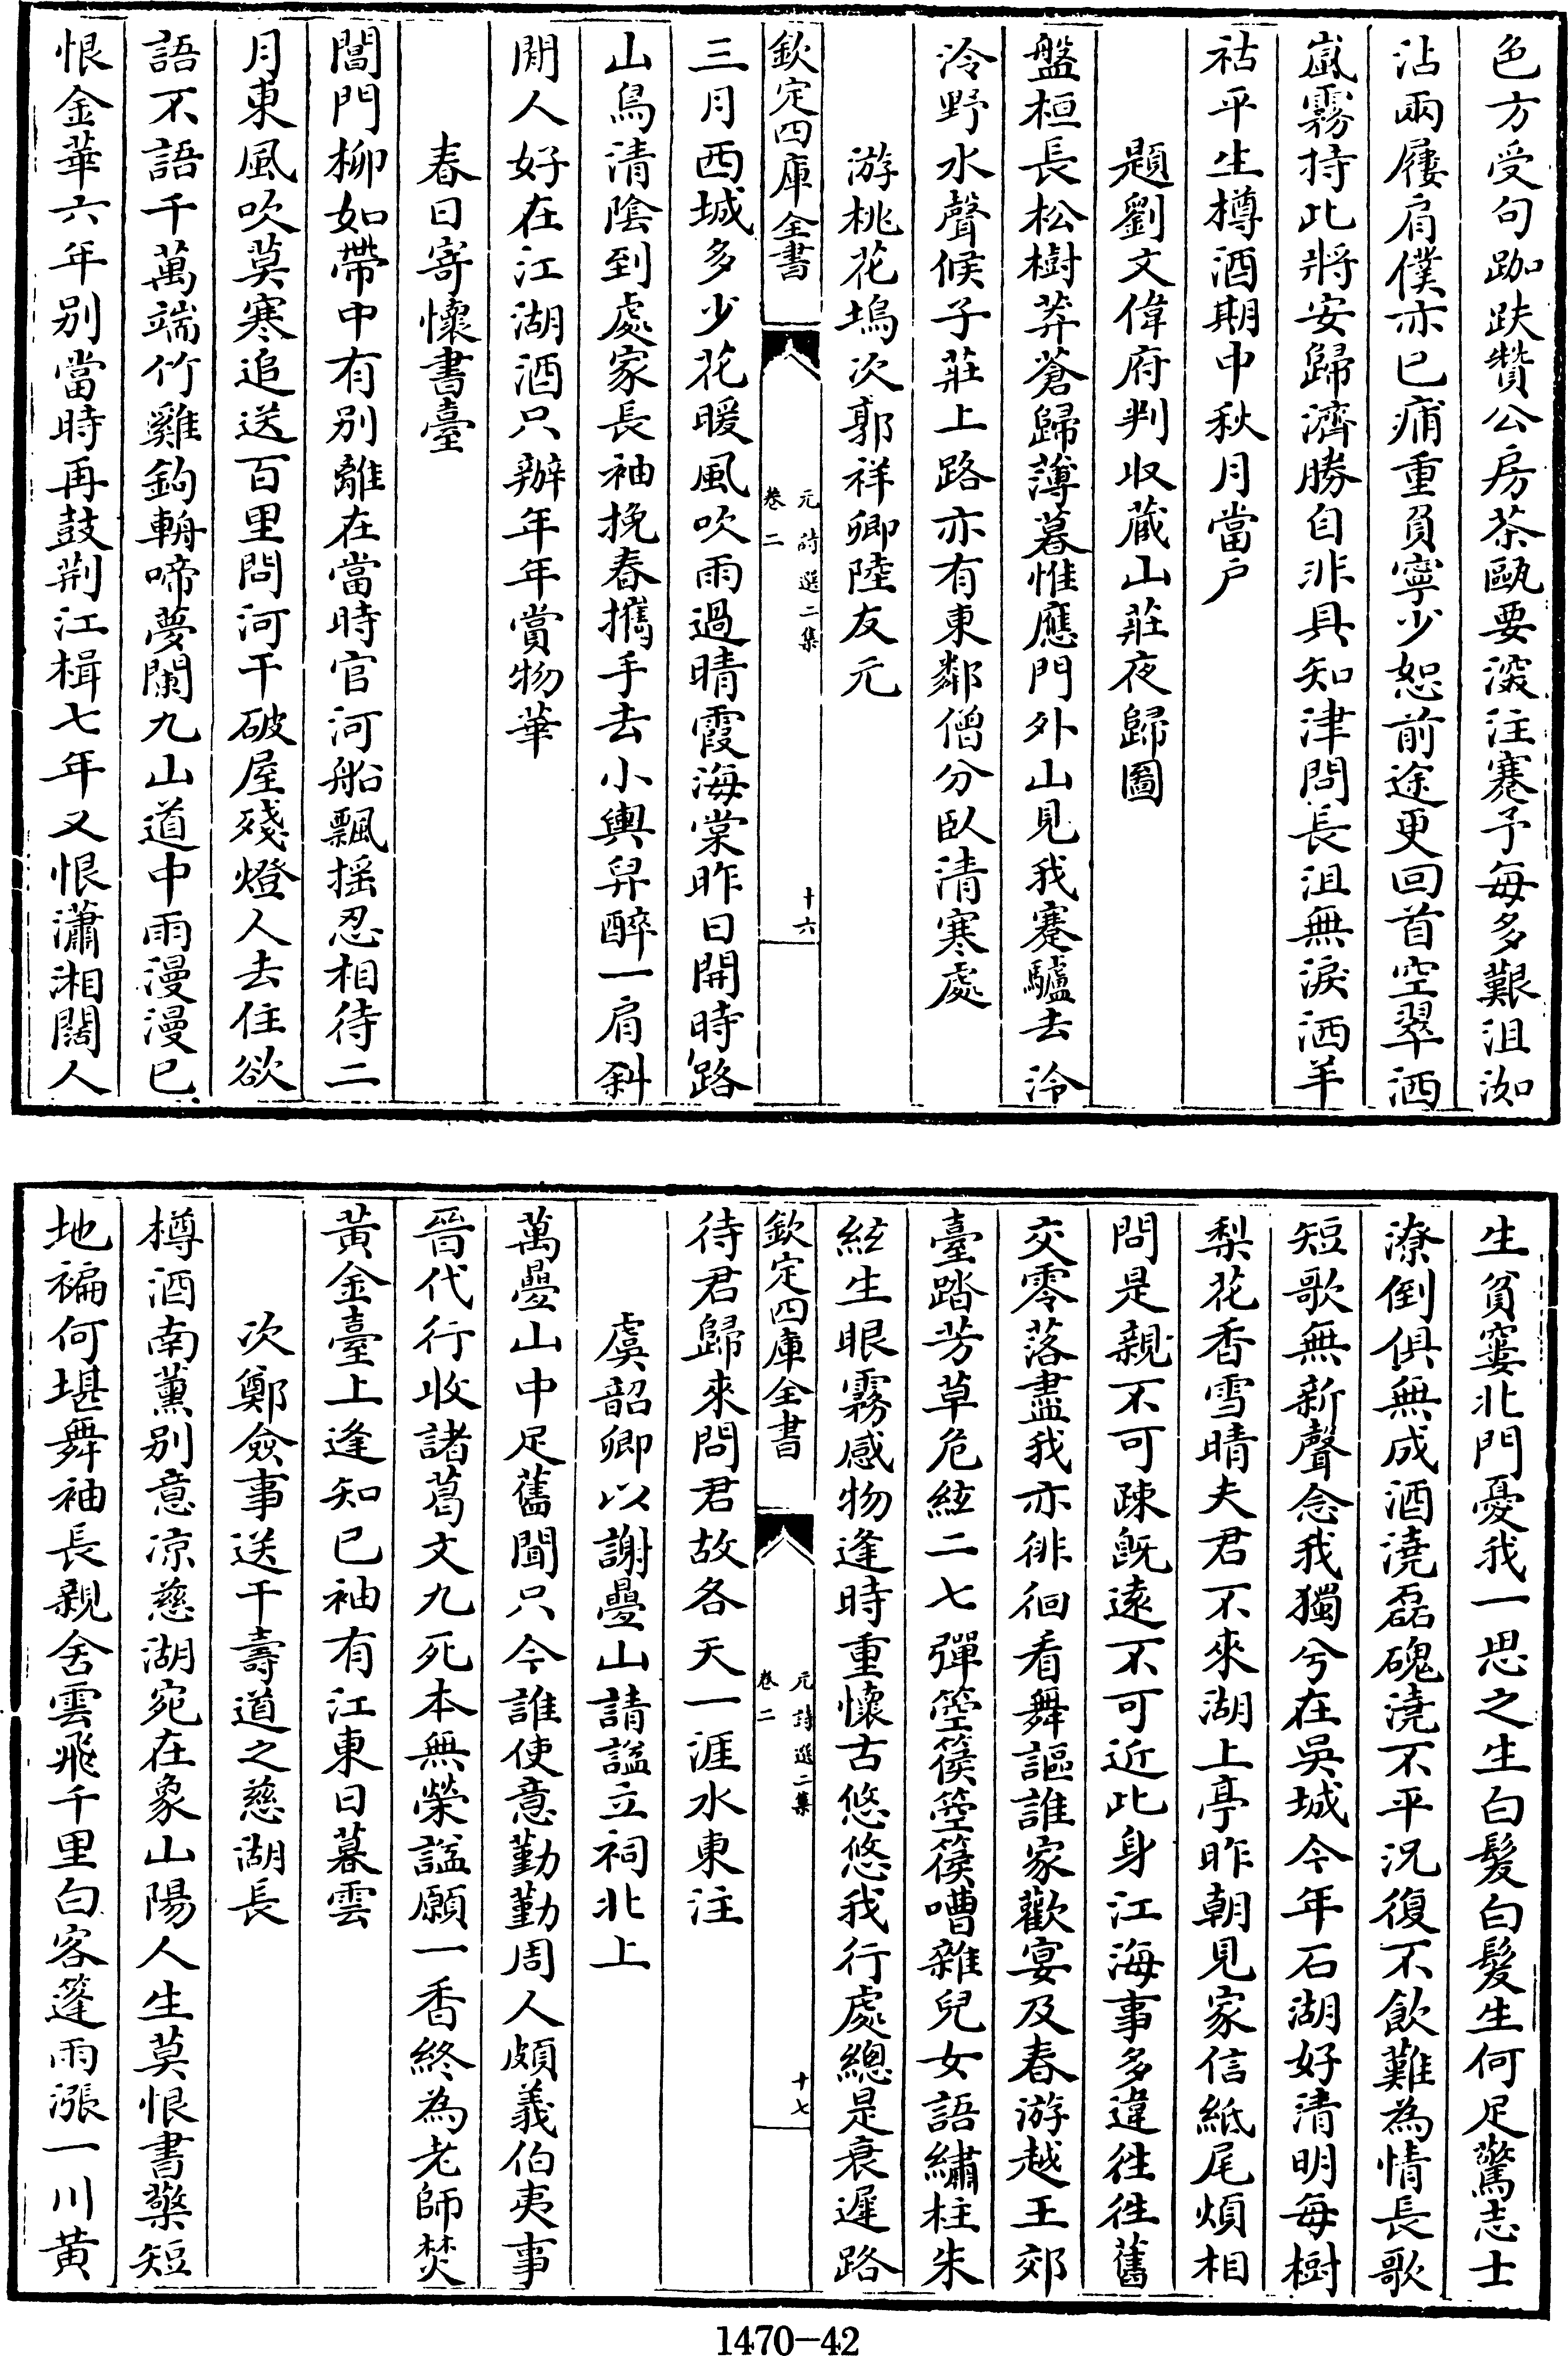 色方受句跏趺贊公房茶甌要深注蹇予每多艱沮洳
沾兩屨肩僕亦已痡重負寧少恕前途更回首空翠洒
嵐霧持此將安歸濟勝自非具知津問長沮無淚洒羊
祜平生樽酒期中秋月當户
題劉文偉府判収蔵山莊夜歸圖
盤桓長松樹莽蒼歸薄暮惟應門外山見我蹇驢去泠
泠野水聲候子莊上路亦有東鄰僧分臥清寒處
游桃花塢次郭祥卿陸友元
欽定四庫全書
元詩選二集
卷二
十六
三月西城多少花暖風吹雨過晴霞海棠昨日開時路
山鳥清陰到處家長袖挽春攜手去小輿舁醉一肩斜
閒人好在江湖酒只辦年年賞物華
春日寄懷書臺
閶門柳如帶中有别離在當時官河船飄揺忍相待二
月東風吹莫寒追送百里問河干破屋殘燈人去住欲
語不語千萬端竹雞鉤輈啼夢闌九山道中雨漫漫已
恨金華六年别當時再鼓荆江楫七年又恨瀟湘闊人
生貧窶北門憂我一思之生白髪白髪生何足驚志士
潦倒俱無成酒澆磊磈澆不平況復不飲難為情長歌
短歌無新聲念我獨兮在吳城今年石湖好清明每樹
梨花香雪晴夫君不來湖上亭昨朝見家信紙尾煩相
問是親不可疎旣遠不可近此身江海事多違徃徃舊
交零落盡我亦徘徊看舞謳誰家歡宴及春游越王郊
臺踏芳草危絃二七彈箜篌箜篌嘈雜兒女語繡柱朱
絃生眼霧感物逢時重懷古悠悠我行處總是衰遲路
欽定四庫全書
元詩選二集
卷二
十七
待君歸來問君故各天一涯水東注
虞韶卿以謝疊山請諡立祠北上
萬疊山中足舊聞只今誰使意勤勤周人頗義伯夷事
晉代行收諸葛文九死本無榮諡願一香終為老師焚
黃金臺上逢知已袖有江東日暮雲
次鄭僉事送干壽道之慈湖長
樽酒南薰别意凉慈湖宛在象山陽人生莫恨書檠短
地褊何堪舞袖長親舍雲飛千里白客篷雨漲一川黃
1470-42